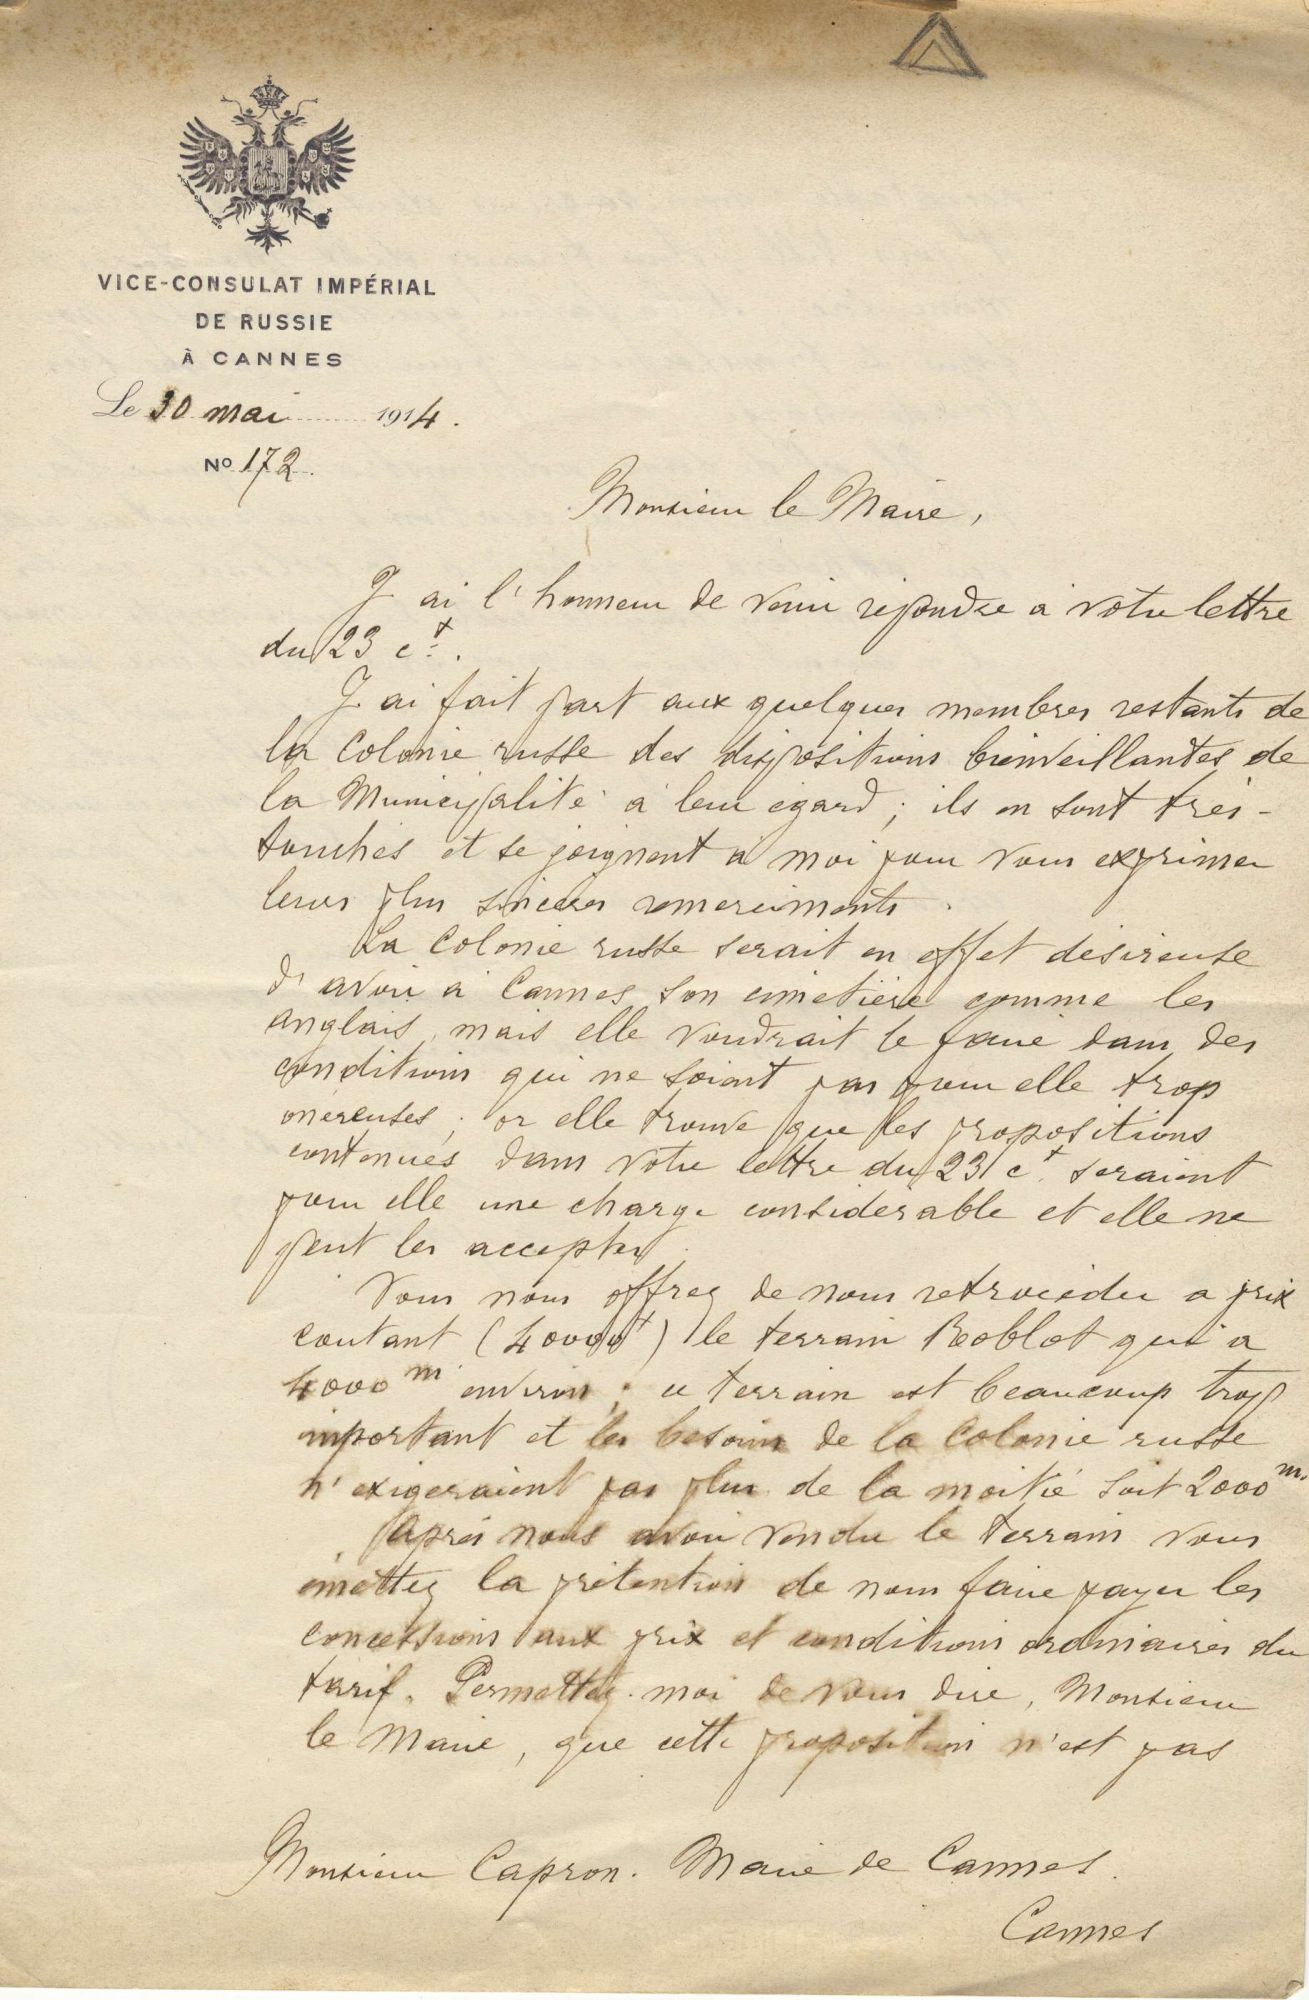 VICE-CONSULAT IMPÉRIAL
DE RUSSIE
À CANNES
Le 30 mai 1914.
No 172.
Monsieur le Maire,
J'ai l'honneur de venir répondre à votre lettre
du 23 ct.
J'ai fait part aux quelques membres restants de
la Colonie russe des dispositions bienveillantes de
la Municipalité à leur égard ; ils en sont très-
touchés et se joignent à moi pour vous exprimer
leurs plus sincères remerciments.
La Colonie russe serait en effet désireuse
d'avoir à Cannes son cimetière comme les
anglais, mais elle voudrait le faire dans des
conditions qui ne soient pas pour elle trop
onéreuses ; or elle trouve que les propositions
contenues dans votre lettre du 23 ct. seraient
pour elle une charge considérable et elle ne
peut les accepter.
Vous nous offrez de nous rétrocéder a prix
coutant (40000f) le terrain Roblot qui a
4000 m environ ; ce terrain est beaucoup trop
important et les besoins de la Colonie russe
n'exigeraient pas plus de la moitié soit 2000 m.
Après nous avoir vendu le terrain vous
émettez la prétention de nous faire payer les
concessions aux prix et conditions ordinaires du
tarif. Permettez-moi de vous dire, Monsieur
le Maire, que cette proposition n'est pas
Monsieur Capron. Maire de Cannes.
Cannes